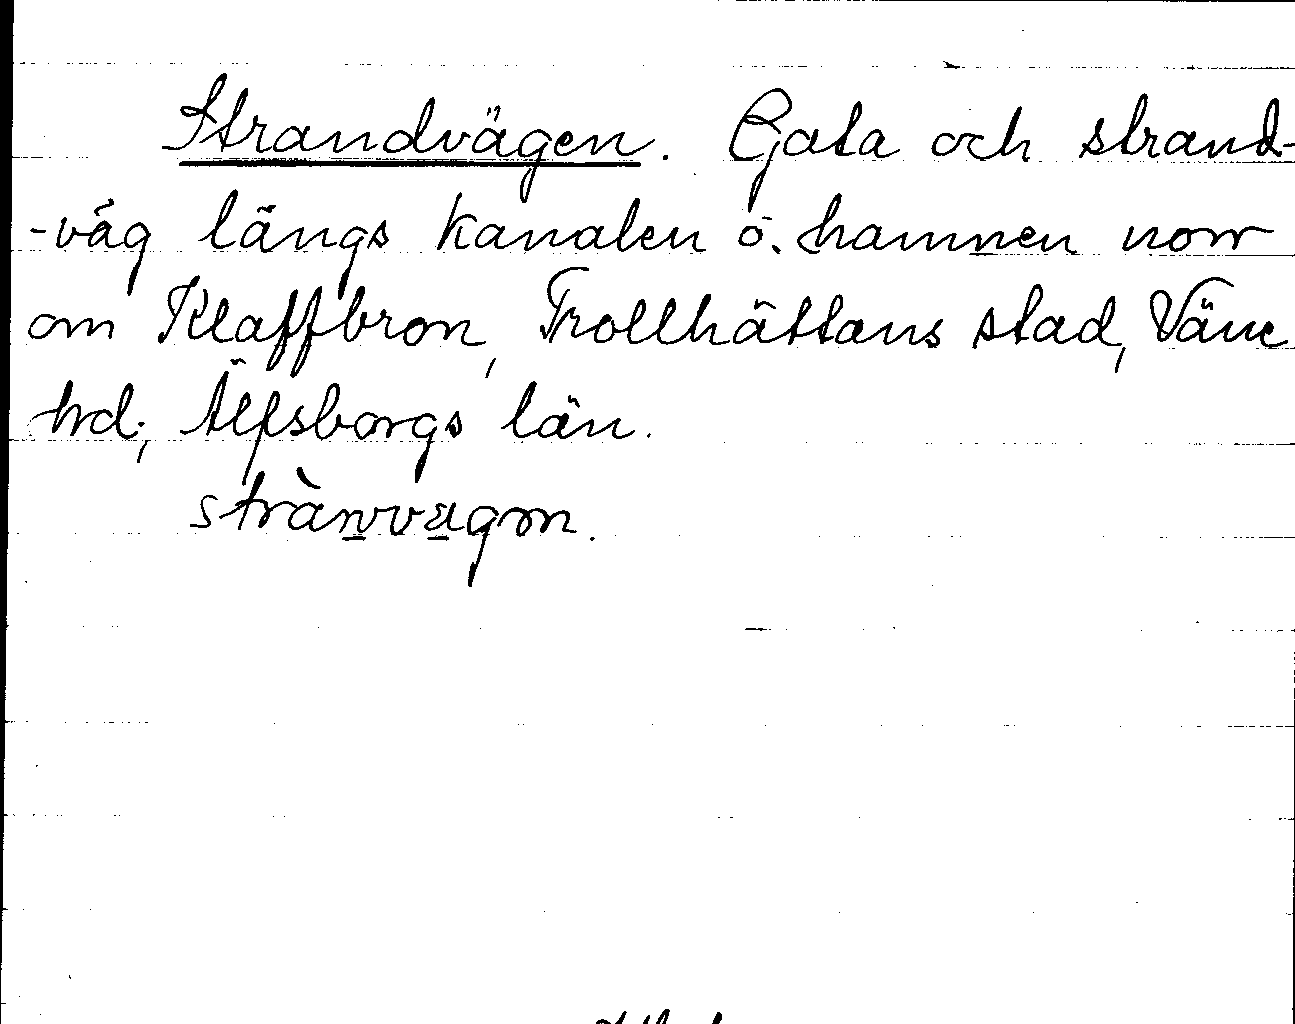 Strandvägen. Gata och strand-
-väg längs kanalen o. hamnen norr
om Klaffbron, Trollhättans stad, Väne
hrd., Älfsborgs län.
strànvägɷn.